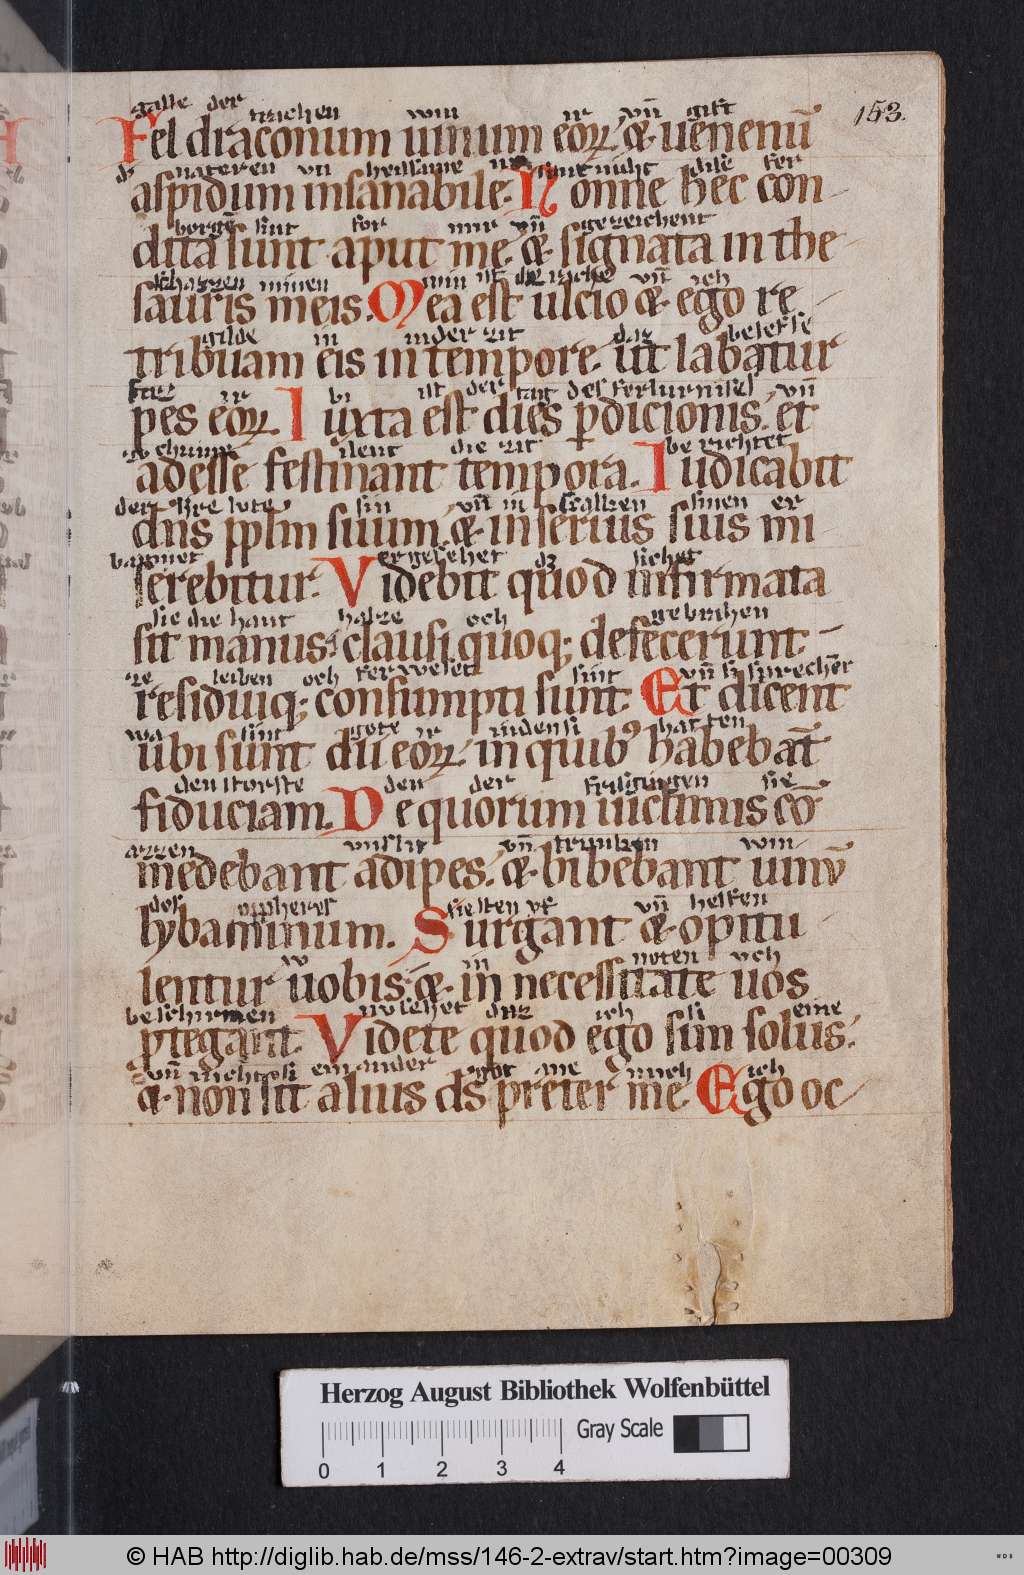 galle der trachen win ir vn̄ gift
153.
Fel draconum uinum eoꝝ. & uenenū
nateren vn̄ heilsame sint nicht dise fer
aspidum insanabile. Nonne hec con
borgē sint for mir vn̄ gezeichent
dita sunt aput me. & signata in the
schatzen minen min ist die vn̄ ich
sauris meis. Mea est ulcio & ego re
gilde in in der zit daz
tribuam eis in tempore. ut labatur
fuz ir bi ist der tag des vn̄
pes eoꝝ. Iuxta est dies p̄dicionis. et
ilent die zit berichtet
adesse festinant tempora. Iudicabit
der sin vn̄ in sinen er
dn̄s pplm suum. & in seruis suis mi
daz
serebitur. Videbit quod infirmata
sie die hant och gebrichen
sit manus. clausi quoq; defecerunt
leiben och sint vn̄ sprechēt
residuiq; consumpti sunt. Et dicent
wa sint gote ir hatten
ubi sunt dii eoꝝ. in quibꝰ habebāt
den der sie
fiduciam. De quorum uictimis cō
azzen vn̄ win
medebant adipes. & bibebant uinū
des vn̄ helfen
lybaminum. Surgant & opitu
in noten vch
lentur uobis. & in necessitate uos
beschirmen daz ich si eine
p̄tegant. Videte quod ego sim solus.
vn̄ nicht si ein ander got ane mich ich
& non sit alius ds̄ preter me. Ego oc
Herzog August Bibliothek Wolfenbüttel
Gray Scale
0 1 2 3 4
© HAB http://diglib.hab.de/mss/146-2-extrav/start.htm?image=00309